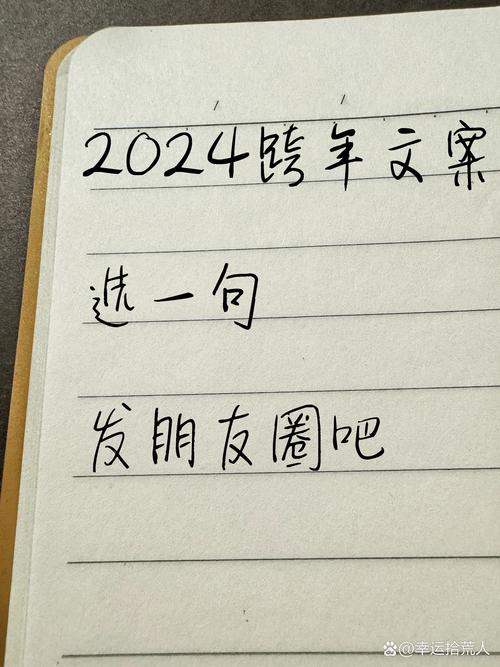 2024跨年文案
选一句
发朋友圈吧
幸运拾荒人